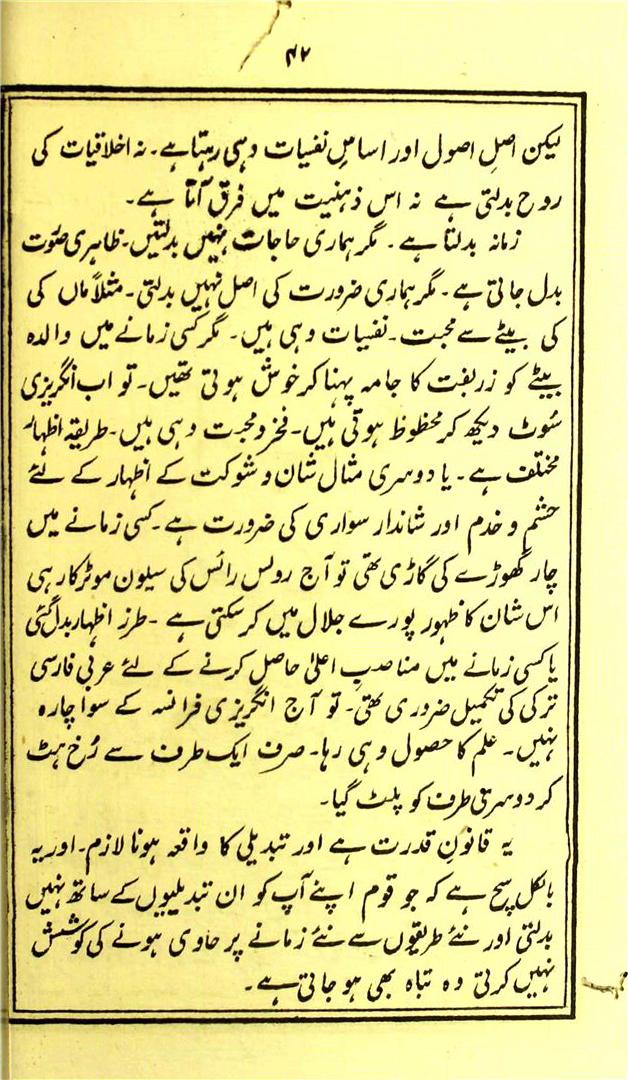 ۴۷
لیکن اصلِ اصول اور اساسِ نفسیات وہی رہتا ہے۔ نہ اخلاقیات کی
روح بدلتی ہے نہ اس ذہنیت میں فرق آتا ہے۔
زمانہ بدلتا ہے۔ مگر ہماری حاجات نہیں بدلتیں۔ ظاہری صوُت
بدل جاتی ہے۔ مگر ہماری ضرورت کی اصل نہیں بدلتی۔ مثلاً ماں کی
کی بیٹے سے محبت۔ نفسیات وہی ہیں۔ مگر کسی زمانے میں والدہ
بیٹے کو زربفت کا جامہ پہنا کر خوش ہوتی تھیں۔ تو اب انگریزی
سُوٹ دیکھ کر محظوظ ہوتی ہیں۔ فخر و محبت وہی ہیں۔ طریقہ اظہار
مختلف ہے۔ یا دوسری مثال شان و شوکت کے اظہار کے لئے
حشم و خدم اور شاندار سواری کی ضرورت ہے۔ کسی زمانے میں
چار گھوڑے کی گاڑی تھی تو آج رولس رائس کی سیلون موٹر کار ہی
اس شان کا ظہور پورے جلال میں کر سکتی ہے۔ طرز اظہار بدل گئی
یا کسی زمانے میں مناصبِ اعلیٰ حاصل کرنے کے لئے عربی فارسی
ترکی کی تکمیل ضروری تھی۔ تو آج انگریزی فرانسہ کے سوا چارہ
نہیں۔ علم کا حصول وہی رہا۔ صرف ایک طرف سے رُخ ہٹ
کر دوسری طرف کو پلٹ گیا۔
یہ قانونِ قدرت ہے اور تبدیلی کا واقعہ ہونا لازم۔ اور یہ
بالکل سچ ہے کہ جو قوم اپنے آپ کو ان تبدیلیوں کے ساتھ نہیں
بدلتی اور نئے طریقوں سے نئے زمانے پر حاوی ہونے کی کوشش
نہیں کرتی وہ تباہ بھی ہو جاتی ہے۔